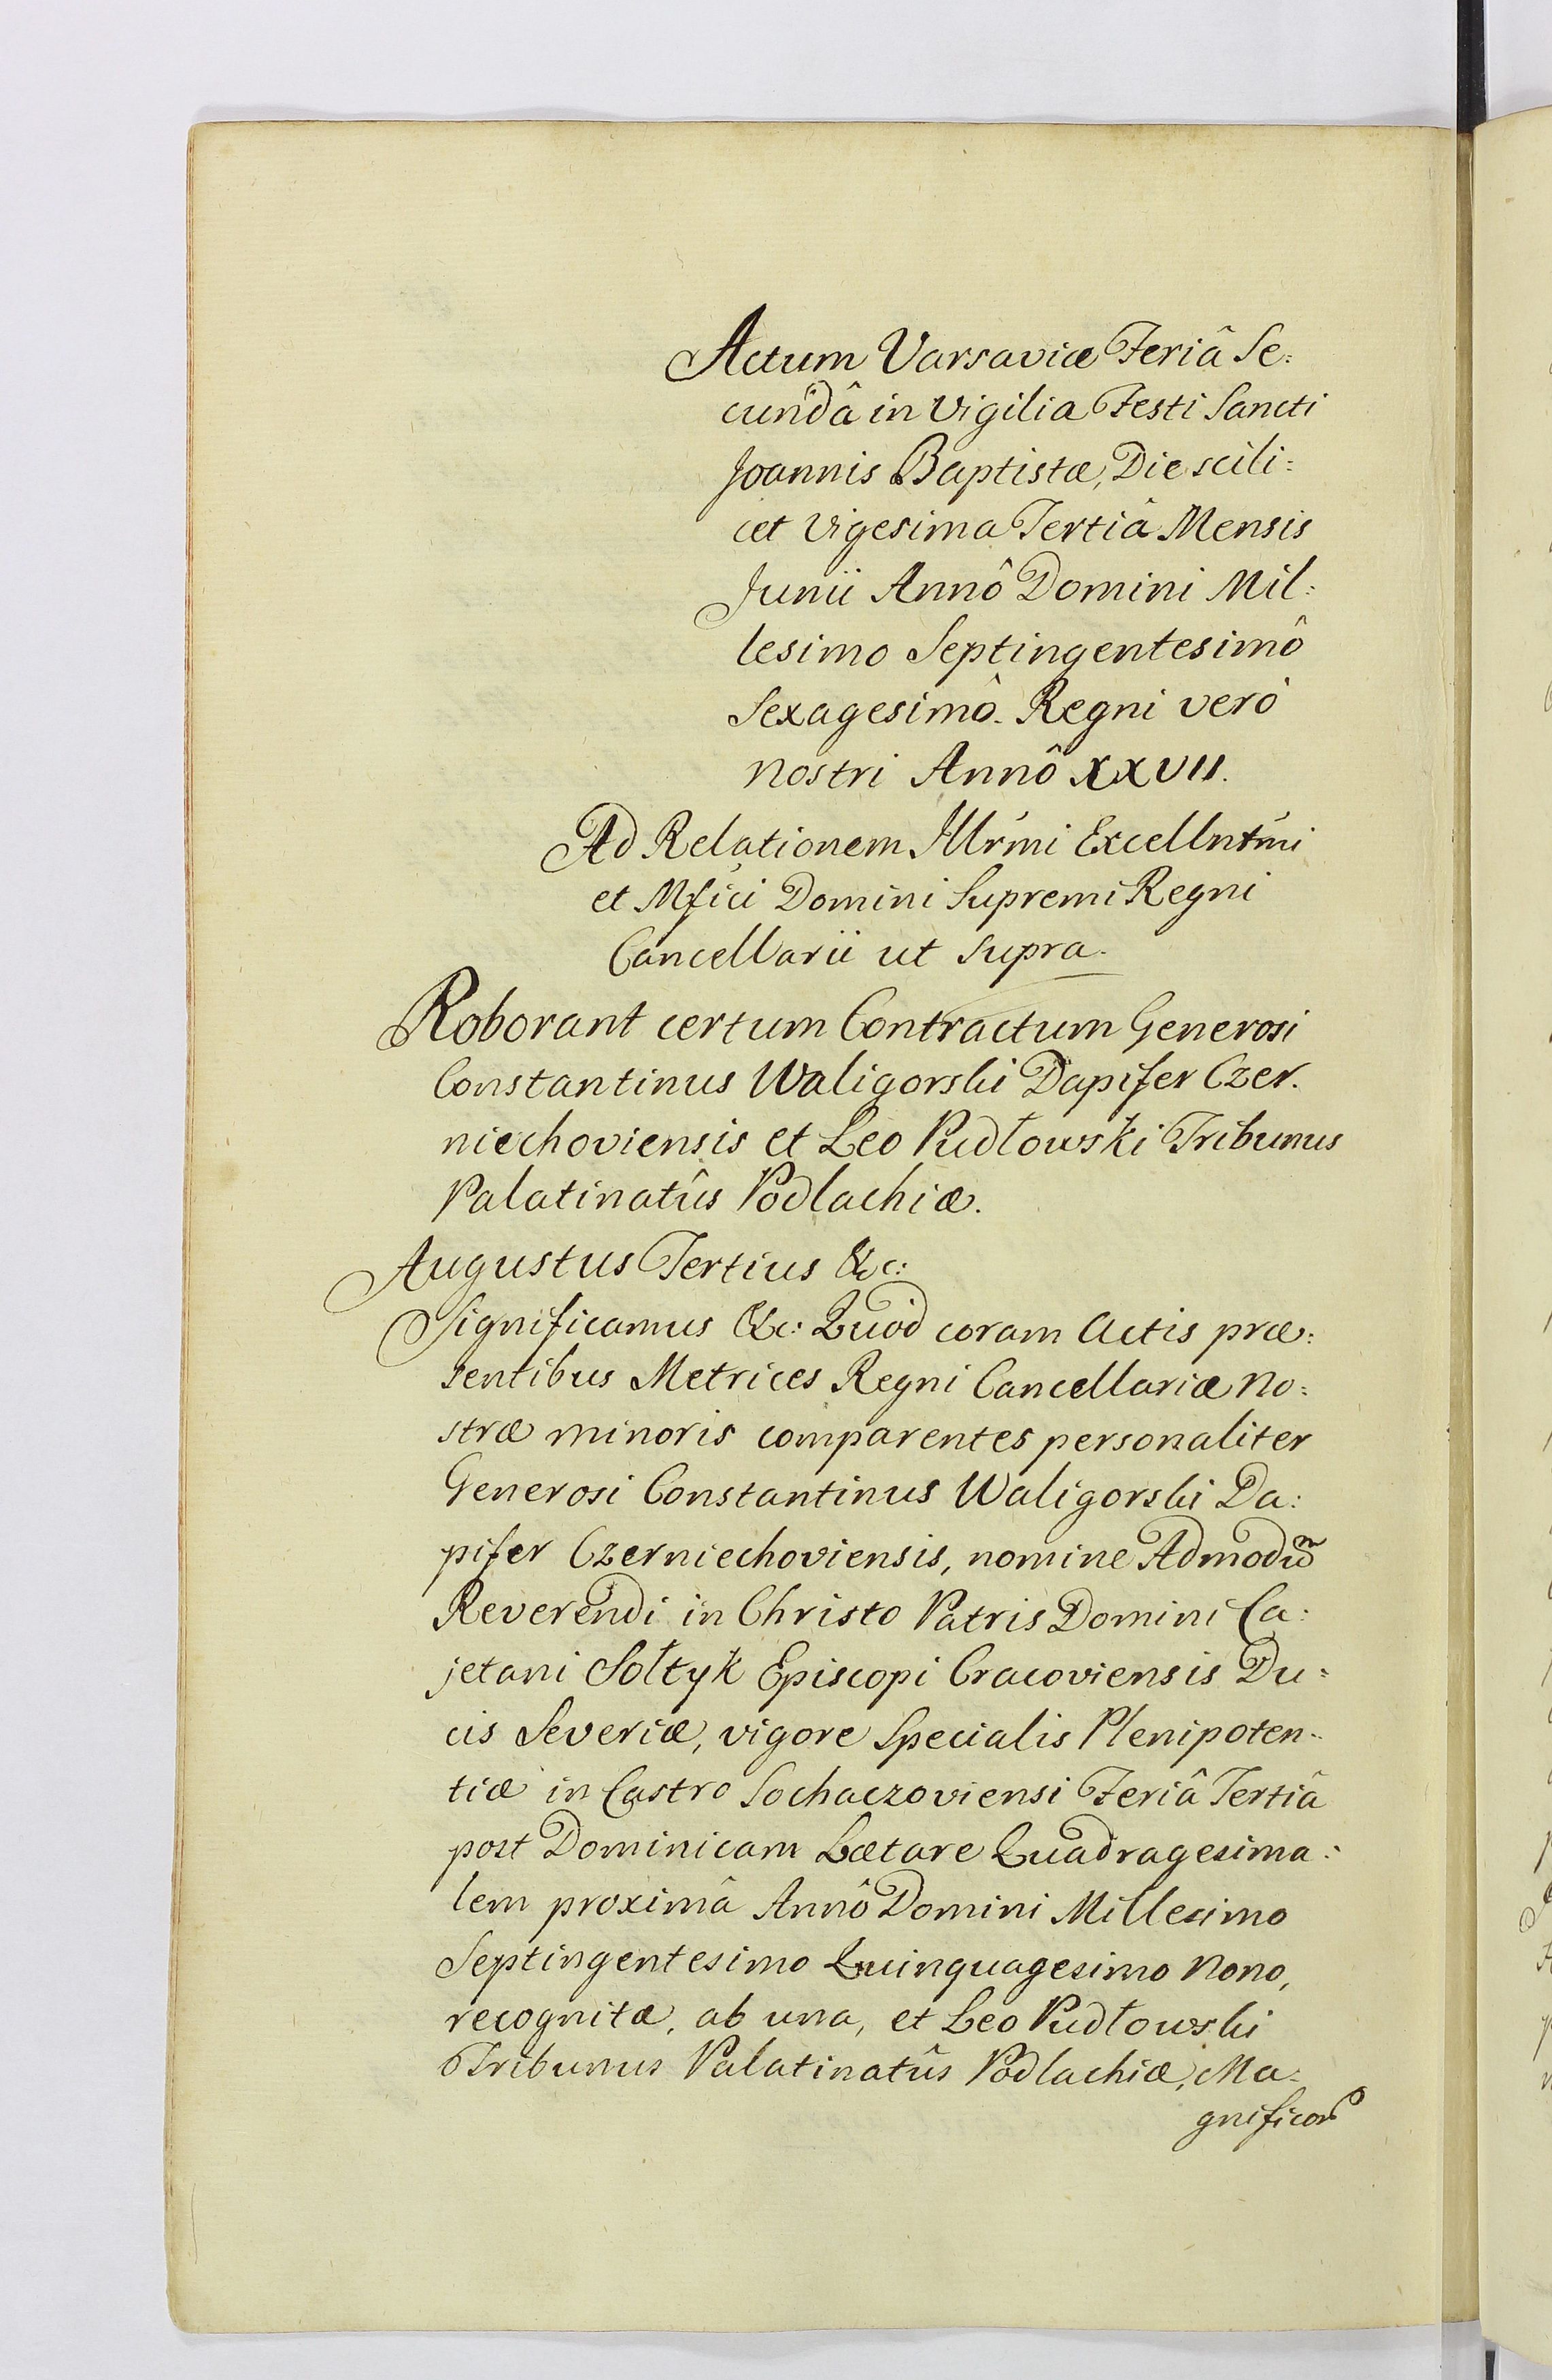 Actum Varsaviæ Feriâ Se:
cundâ in Vigilia Festi Sancti
Joannis Baptistæ, Die scili:
cet Vigesima Tertiâ Mensis
Junii Annô Domini Mil:
lesimo Septingentesimô
Sexagesimô. Regni verò
nostri Annô XXVII.
Ad Relationem Illrmi Excellntmi
et Mfici Domini Supremi Regni
Cancellarii ut supra.
Roborant certum Contractum Generosi
Constantinus Waligorski Dapifer Czer.
niechoviensis et Leo Pudłowski Tribunus
Palatinatûs Podlachiæ.
Augustus Tertius &c:
Significamus &c: Quod coram Actis præ:
sentibus Metrices Regni Cancellariæ No:
stræ minoris comparentes personaliter
Generosi Constantinus Waligorski Da:
pifer Czerniechoviensis, nomine Admodũ
Reverendi in Christo Patris Domini Ca:
jetani Sołtyk Episcopi Cracoviensis Du:
cis Severiæ, vigore Specialis Plenipoten:
tiæ in Castro Sochaczoviensi Feriâ Tertiâ
post Dominicam Lætare Quadragesima:
lem proximâ Annô Domini Millesimo
Septingentesimo Quinquagesimo Nono,
recognitæ, ab una, et Leo Pudłowski
Tribunus Palatinatûs Podlachiæ, Ma:
gnificor